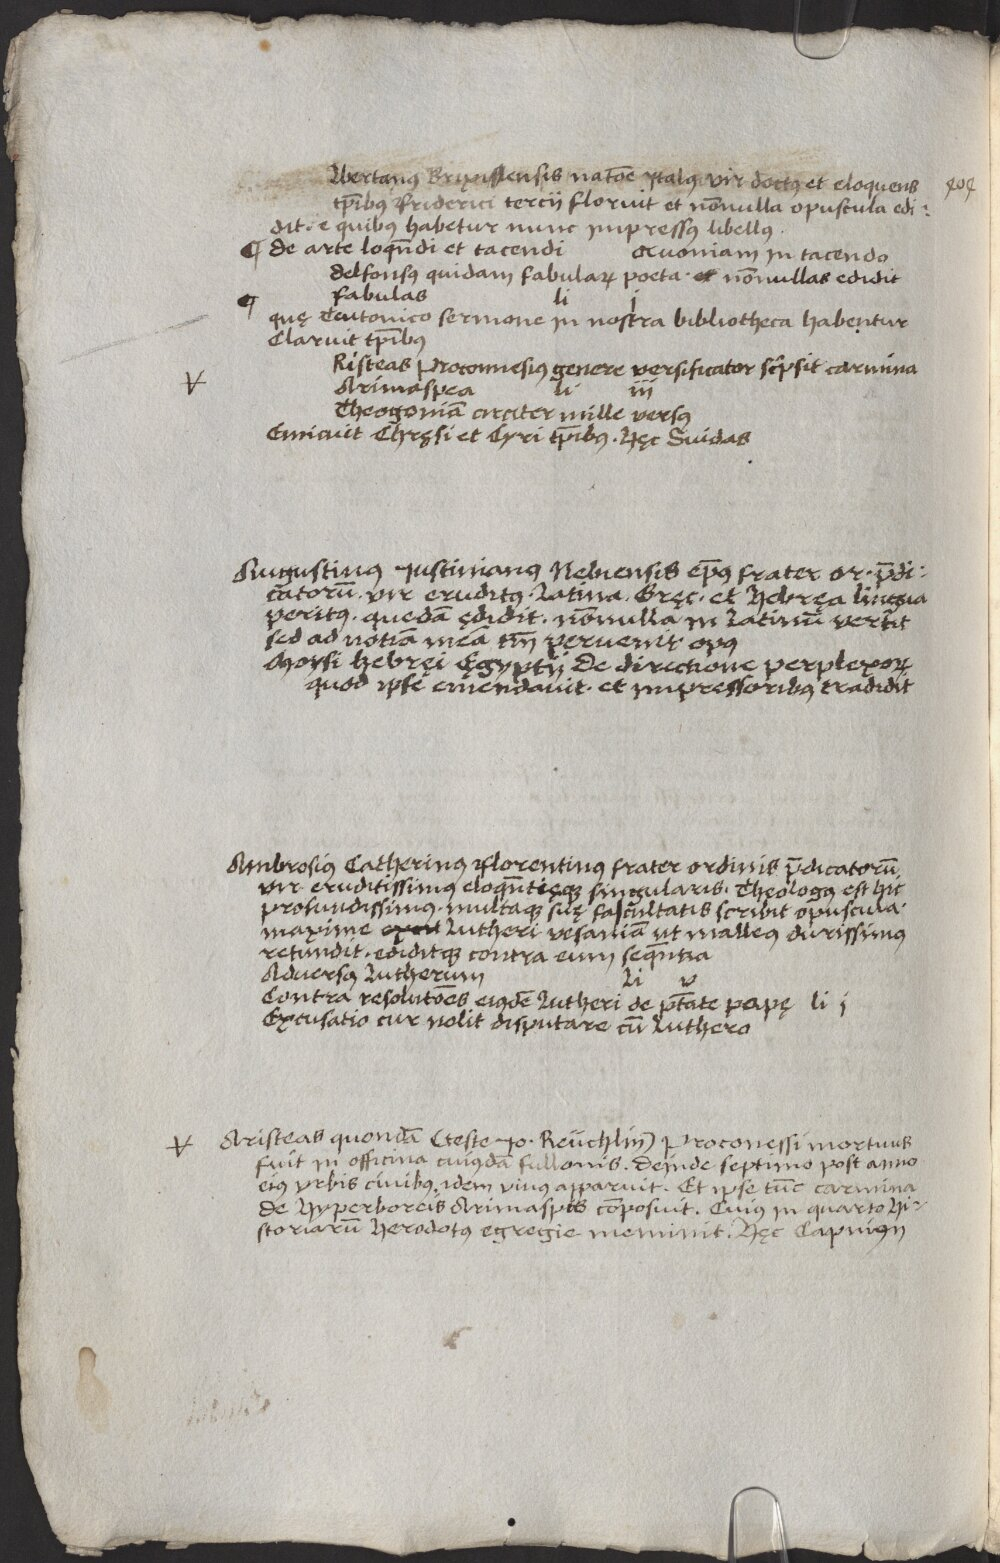 lbertanꝰ Brixiensis natōe Italꝰ vir doctꝰ et eloquens
tp̄ibꝰ Friderici tercij floruit et nōnulla opuscula edi:
dit. e quibꝰ habetur nunc impressꝰ libellꝰ.
¶ De arte loquēdi et tacendi Quoniam in tacendo
delfonsꝰ quidam fabulaꝝ poeta. nōnullas edidit
¶ fabulas li j
quę Teutonico sermone in nostra bibliotheca habentur
Claruit tp̄ibꝰ
Risteas Proconnesiꝰ genere versificator sc̄psit carmina
Arimaspea li iij
Theogoniā circiter mille versꝰ
Emicuit Chręsi et Cyri tp̄ibꝰ. Hęc Suidas
Augustinꝰ Iustinianꝰ Nebiensis ep̄ꝰ frater or. p̄di:
catorū. vir eruditꝰ. Latina. Gręc. et Hebręa lingua
peritꝰ. quedā ędidit. nōnulla in Latinū vertit
sed ad notiā meā tm̄ pervenit opꝰ
Moysi hebręi Ęgyptij De directione perplexoꝝ
quod ipse emendavit. et impressoribꝰ tradidit
Ambrosiꝰ Catherinꝰ Florentinꝰ frater ordinis p̄dicatorū,
vir eruditissimꝰ eloquētięqꝫ singularis. Theologꝰ est hic
profundissimꝰ. multaqꝫ suę facultatis scribit opuscula.
maxime Lutheri vesaniā ut malleꝰ durissimꝰ
retundit. ediditqꝫ contra eum sequētia
Adversꝰ Lutherum li v
Contra resolutōes eiꝰdē Lutheri de p̄tate papę li j
Excusatio cur nolit disputare cū Luthero
Aristeas quondā (teste Io. Reuchlin) Proconessi mortuus
fuit in officina cuiꝰdā fullonis. Deinde septimo post anno
eiꝰ vrbis civibꝰ idem vivus apparuit. Et ipse tūc carmina
de Hyperboreis Arimaspis cōposuit. Cuius in quarto Hi:
storiarū Herodotꝰ egregie meminit. Hęc Capnion